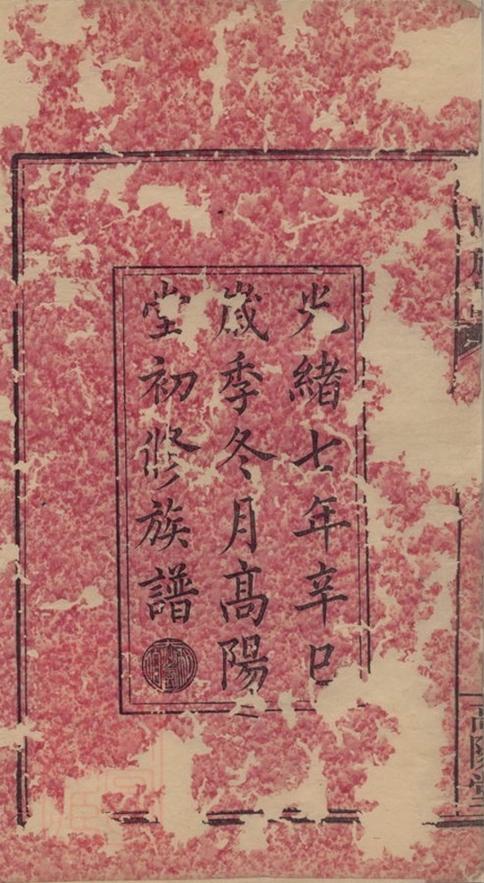 光緒七年辛巳
歲季冬月高陽
堂初修族譜
高陽堂